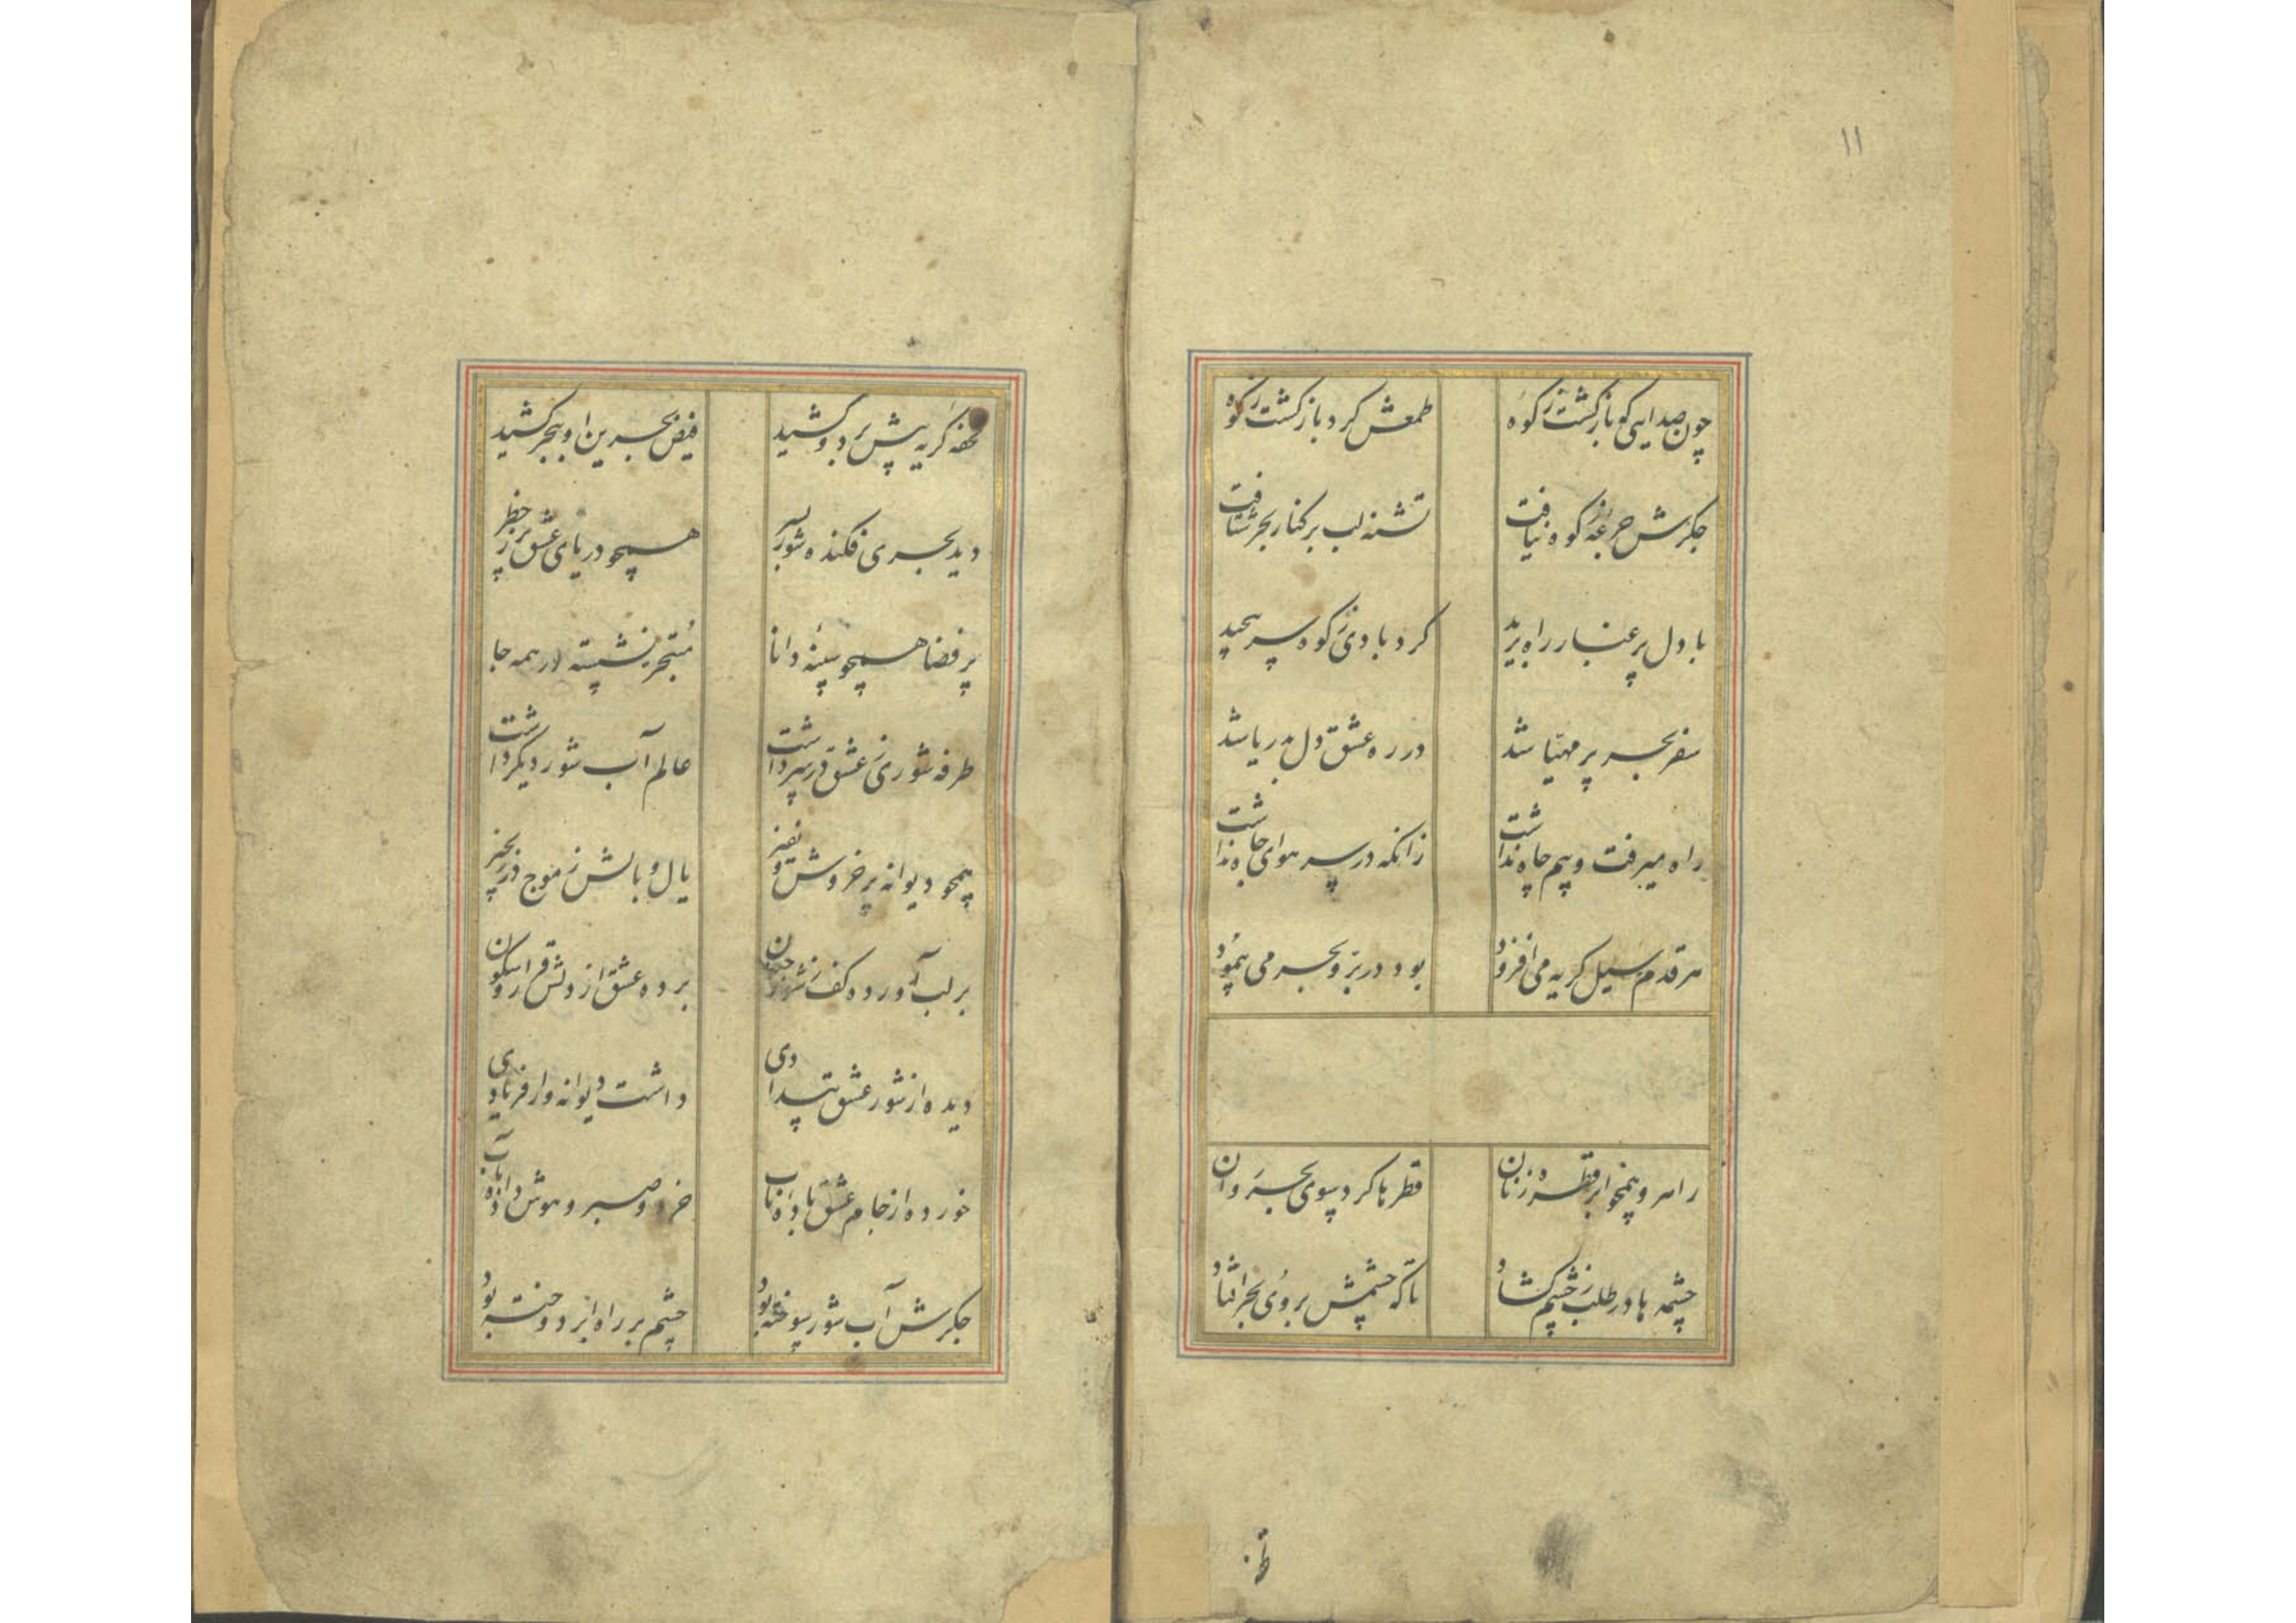 ۱۱
چون صدایی کو بازگشت ز کوه طمعش کرد بازگشت ز کوه
جگرش جرعهٔ ز کوه نیافت تشنه لب بر کنار بحر شتافت
با دل پر غبار راه برید گردبادی ز کوه سر پیچید
سفر بحر پر مهیا شد در ره عشق دل بدریا شد
راه میرفت و بیم چاه نداشت زانکه در سر هوای جاه نداشت
هر قدم سیل گریه می افزود بود در بر و بحر می پیمود
راهرو همچو ابر قطره زنان قطرها کرد سوی بحر روان
چشمه ها در طلب ز چشم گشاد تا که چشمش بروی بحر افتاد
تحفه گریه پیش برد و کشید فیض بحرین او ببحر کشید
دید بحری فکنده شور بسر همچو دریای عشق پر ز خطر
پر فضا همچو سینه دانا متبحر نشسته در همه جا
طرفه شوری ز عشق در سر داشت عالم آب شور دیگر داشت
همچو دیوانه پر خروش و نفیر یال و بالش ز موج در زنجیر
بر لب آورده کف ز شور جنون برده عشق از دلش قرار و سکون
دیده از شور عشق بیدادی داشت دیوانه وار فریادی
خورده از جام عشق باده ناب خرد و صبر و هوش داده بآب
جگرش آب شور سوخته بود چشم بر راه ابر دوخته بود